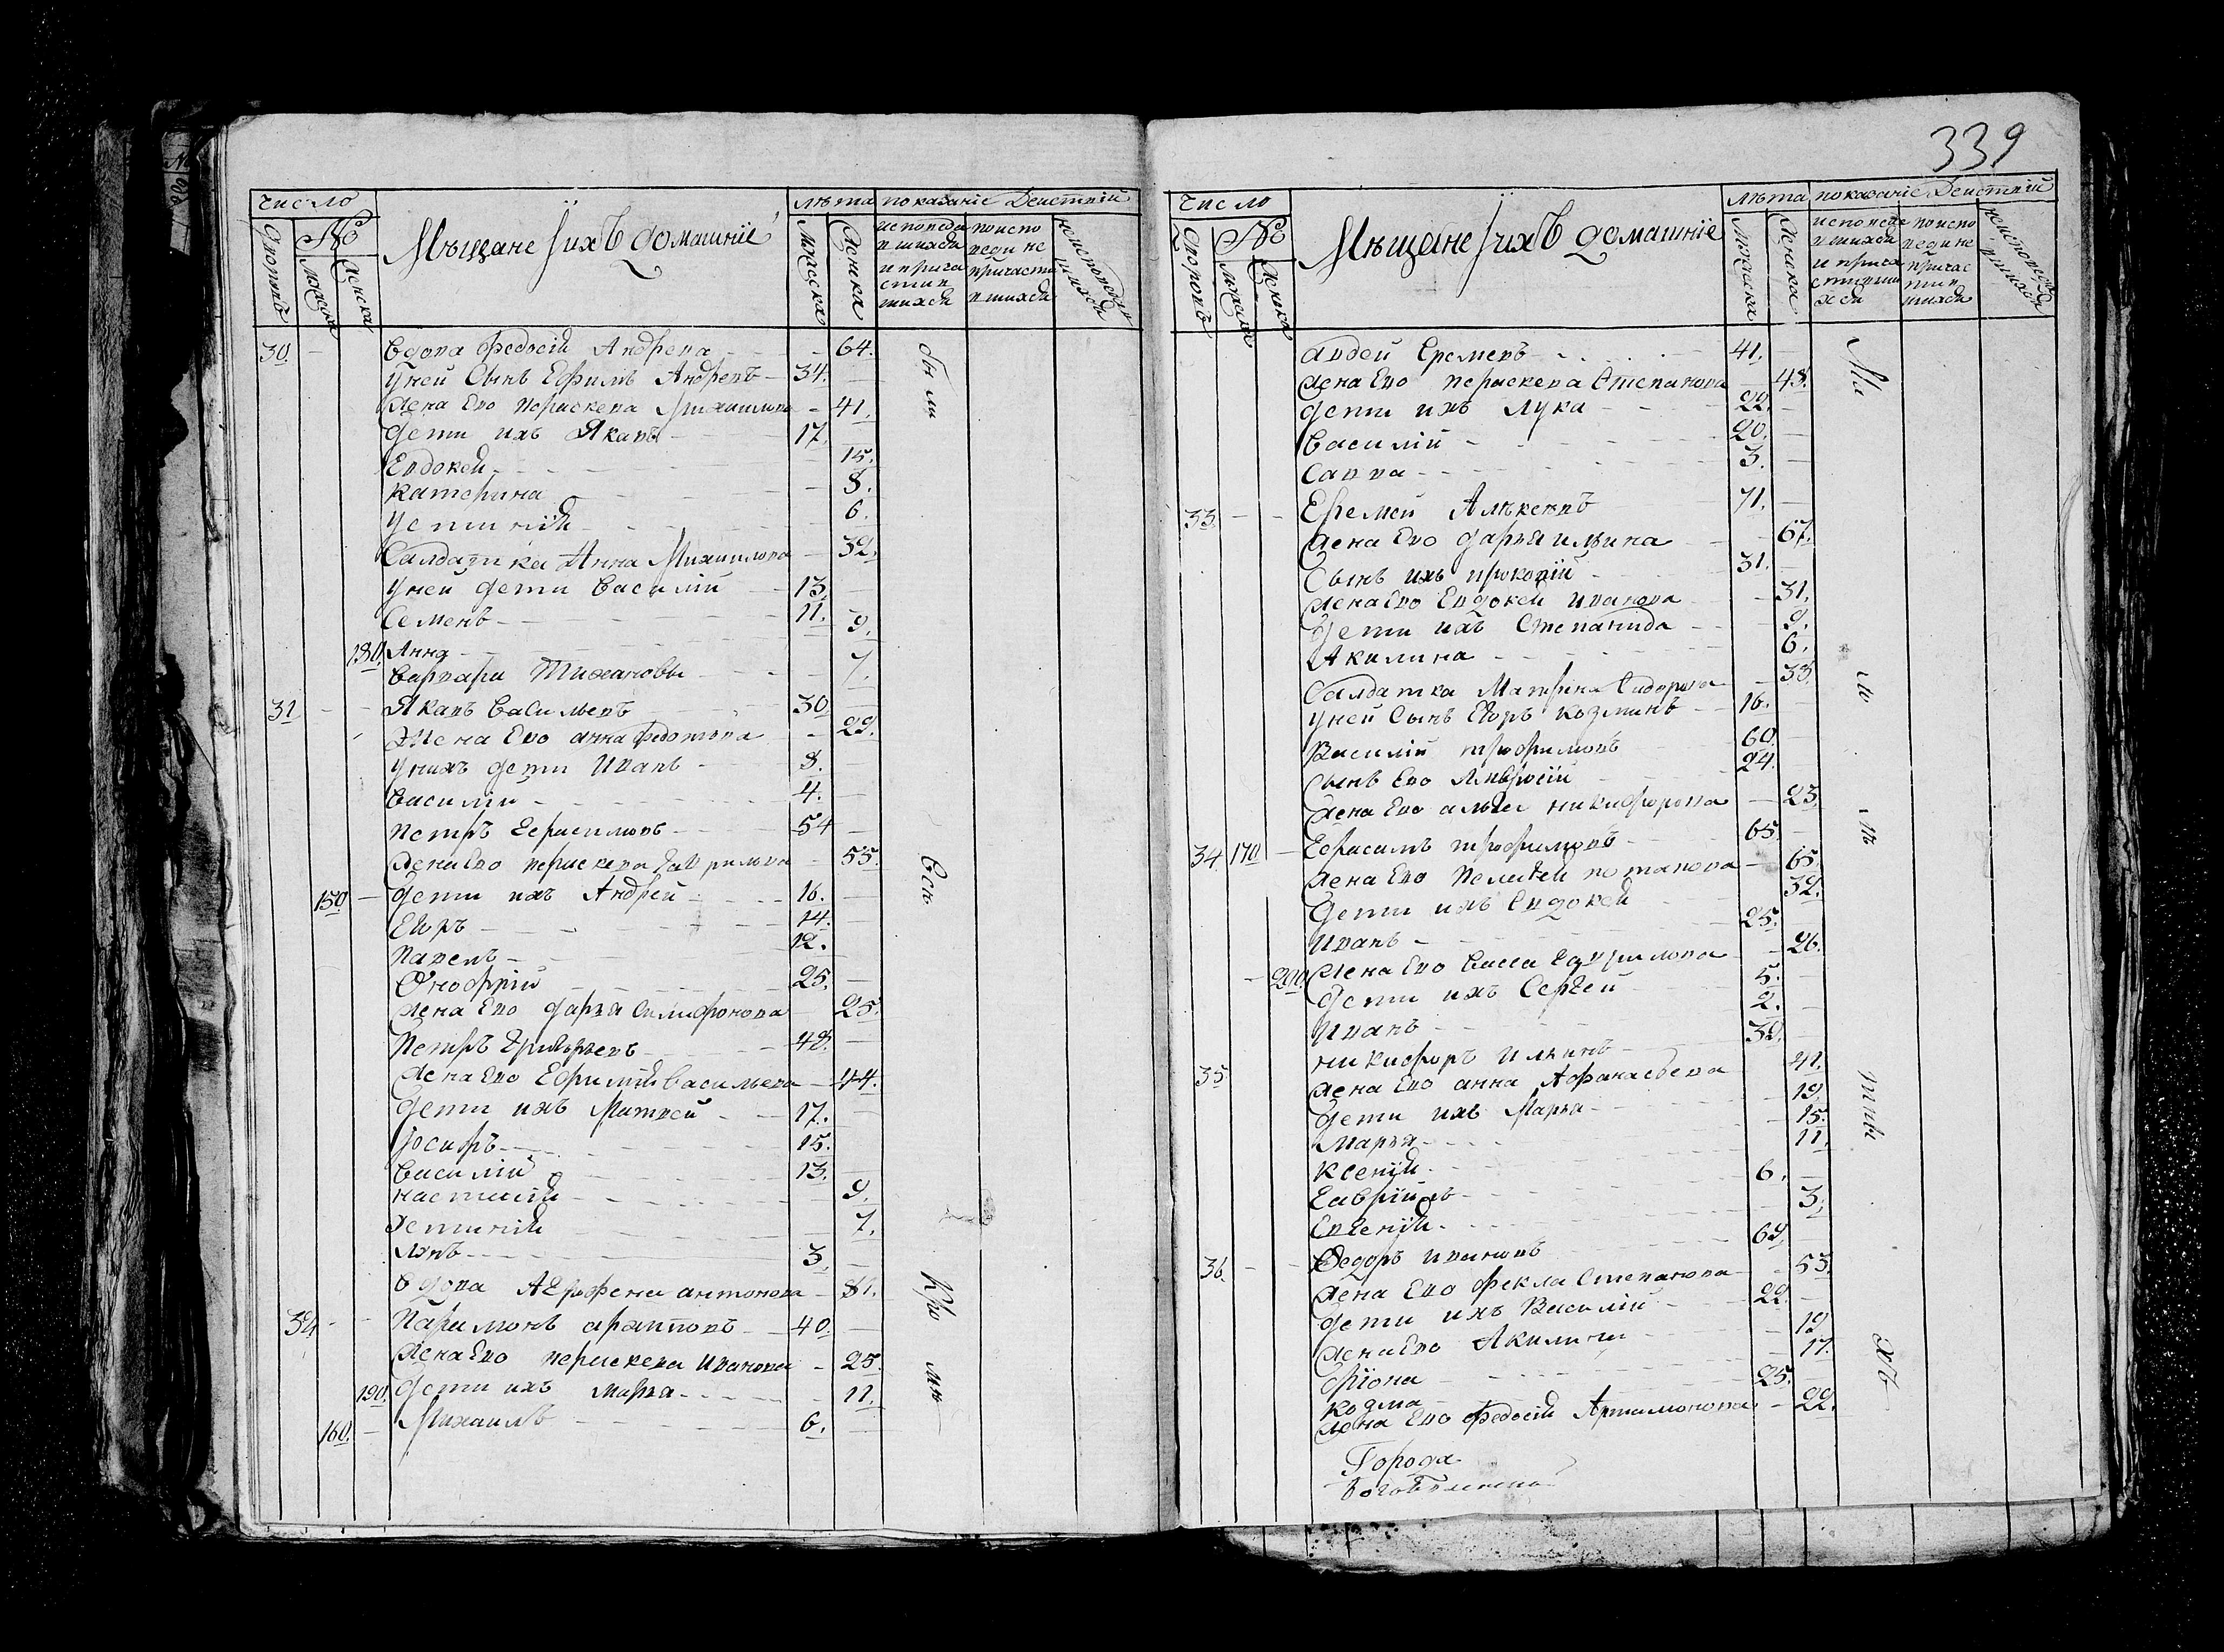 число
№
Мѣщане и ихъ домашніе
лѣта
показаніе Действій
Дворовъ
Мужска
Женска
Мужска
Женска
исповеда
вшихся
и прича
стив
шихся
по испо
веди не
причасти
вшихся
неисповеда
вшихся
30. Вдова Федосія Андрева 64.
У ней Сынъ Ефимъ Андревъ 34.
Жена Ево Параскева Михаилова 41.
Дети ихъ Яковъ 17.
Евдокея 15.
Катерина 8.
Устинія 6.
Салдатка Анна Михаилова 32.
У ней дети Василій 13.
Семенъ 11.
180. Анна 9.
Варвара Тихановы 7.
31 Яковъ Васильевъ 30
Жена Ево анна Федотова 29.
У нихъ дети Иванъ 8.
Василій 4.
Петръ Герасимовъ 54
Жена Ево Параскева Гаврилова 55.
150. Дети ихъ Андрей 16.
Егоръ 14.
Павелъ 12.
Онофрій 25.
Жена Ево дарья 25.
Петръ Григорьевъ 48.
Жена Ево Ефимія Васильева 44.
Дети ихъ Матвей 17.
Иосифъ 15.
Василій 13.
Настасія 9.
Устинія 7.
3.
Вдова Агрофена антонова 81.
32 Парамонъ 40.
Жена Ево Параскева Иванова 25.
190. Дети ихъ Марья 11.
160. Михаилъ 6.
были
Все
Кро
ме
339
число
№
Мѣщане и ихъ домашніе
лѣта
показаніе Действій
Дворовъ
Мужска
Женска
Мужска
Женска
исповеда
вшихся
и прича
стивши
хся
по испо
веди не
причас
тив
шихся
неисповеда
вшихся
авдей Еремевъ 41.
Жена Ево Параскева Степанова 48.
Дети ихъ Лука 22.
Василій 20.
Савва 3.
33. Еремей Алексевъ 71.
Жена Ево дарья ильина 67.
Сынъ ихъ прокопій 31.
Жена Ево Евдокея иванова 31.
Дети ихъ Степанида 9.
Акилина 6.
Салдатка Матрена Сидорова 33.
У ней Сынъ Егоръ козминъ 16.
Василій трофимовъ 60.
Сынъ Ево Амвросій 24.
Жена Ево никифорова 23.
34. 170. Герасимъ трофимовъ 65.
Жена Ево Пелагея потапова 65.
Дети ихъ Евдокея 32.
Иванъ 25.
200. Жена Ево Васса Гаврилова 26.
Дети ихъ Сергей 5.
Иванъ 2.
35 никифоръ Ильинъ 32.
Жена Ево анна Афанасьева 41.
Дети ихъ Марья 19.
Марья 15.
Ксенія 11.
Гавріилъ 6.
Евгенія 3.
36. Федоръ ивановъ 62.
Жена Ево фекла Степанова 53.
Дети ихъ Василій 22.
Жена Ево Акилина 19
17.
Козма 25.
Жена Ево Федосія Артамонова 22.
Ма
ло
лѣ
тны
хъ
Города